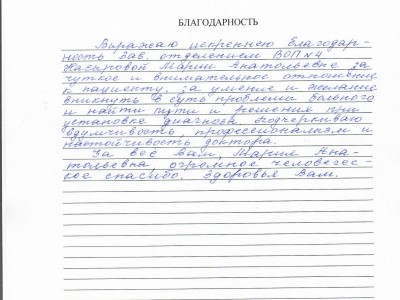 БЛАГОДАРНОСТЬ
Выражаю искреннею благодар-
ность зав. отделением ВОП №4
Насыровой Марии Анатольевне за
чуткое и внимательное отношение
к пациенту, за умение и желание
вникнуть в суть проблемы больного
и найти пути и решения при
установке диагноза. Подчеркиваю
вдумчивость, профессионализм и
настойчивость доктора.
За всё Вам, Мария Ана-
тольевна огромное человечес-
кое спасибо. Здоровья Вам.